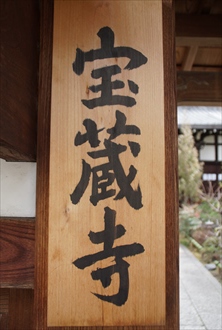 宝蔵寺